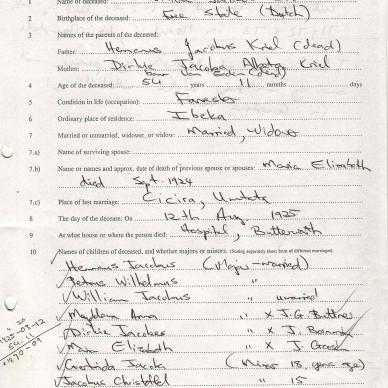 1 Name of deceased:
2 Birthplace of the deceased: Free State (Dutch)
3 Names of the parents of the deceased:
Father: Hermanus Jacobus Kriel (dead)
Mother: Dirkie Jacoba Kriel
born (dead)
4 Age of the deceased: 54 years 11 months days
5 Condition in life (occupation): Farmer
6 Ordinary place of residence: Ibeka
7 Married or unmarried, widower, or widow: Married, Widower
7.a) Name of surviving spouse:
7.b) Name or names and approx. date of death of previous spouse or spouses: Maria Elizabeth
died Sept. 1924
7.c) Place of last marriage: Cicira, Umtata
8 The day of the decease: On 12th Aug 1925
9 At what house or where the person died: Hospital, Butterworth
10 Names of children of deceased, and whether majors or minors. (Stating separately those born of different marriages).
Hermanus Jacobus (Major - married)
Wilhelmus "
William Jacobus " unmarried
Anna " x J.G.
Dirkie Jacoba " x J.
Elizabeth " x J.
Jacoba (Minor 18 years age)
Jacobus " 15
20
1925-08-12
54-11
1870-09